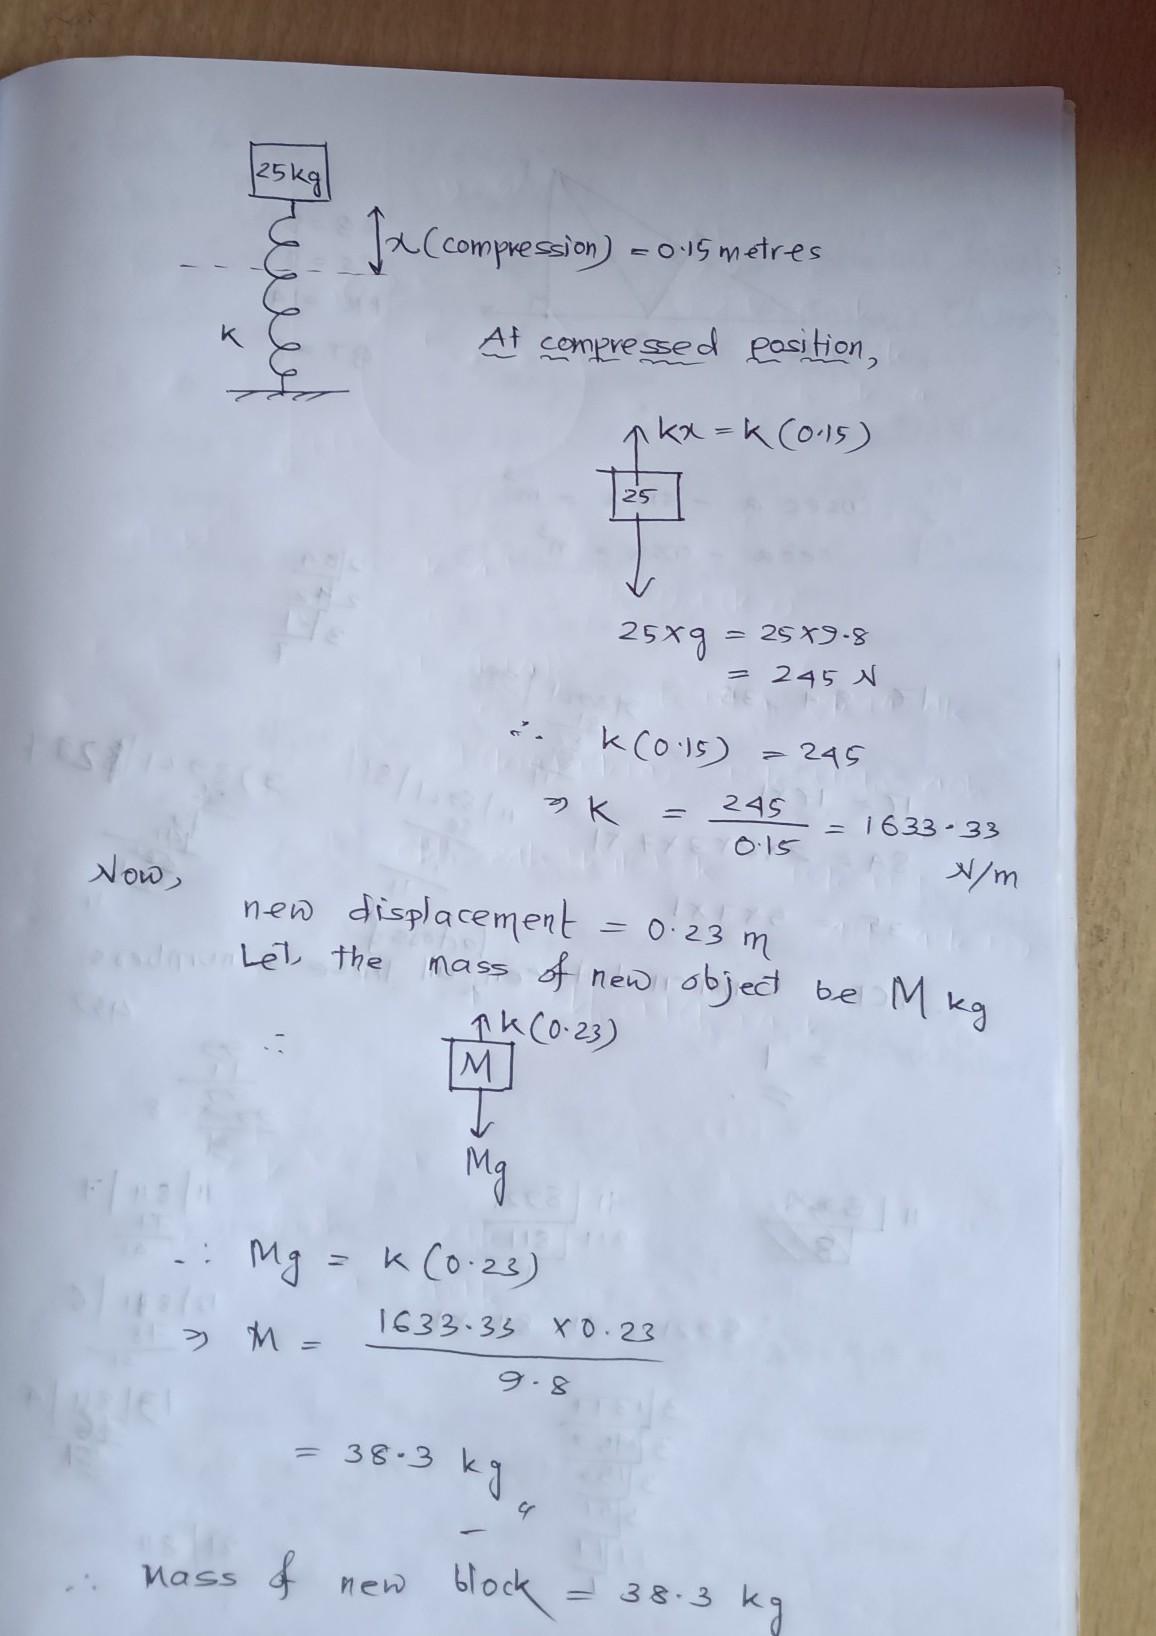 25kg
x (compression) = 0.15 metres
K
At compressed position,
kx = k (0.15)
25
25 x g = 25 x 9.8
= 245 N
∴ k (0.15) = 245
⇒ K = 245 / 0.15 = 1633.33
N/m
Now,
new displacement = 0.23 m
Let, the mass of new object be M kg
∴ k (0.23)
M
Mg
∴ Mg = k (0.23)
⇒ M = 1633.33 x 0.23 / 9.8
= 38.3 kg
∴ Mass of new block = 38.3 kg